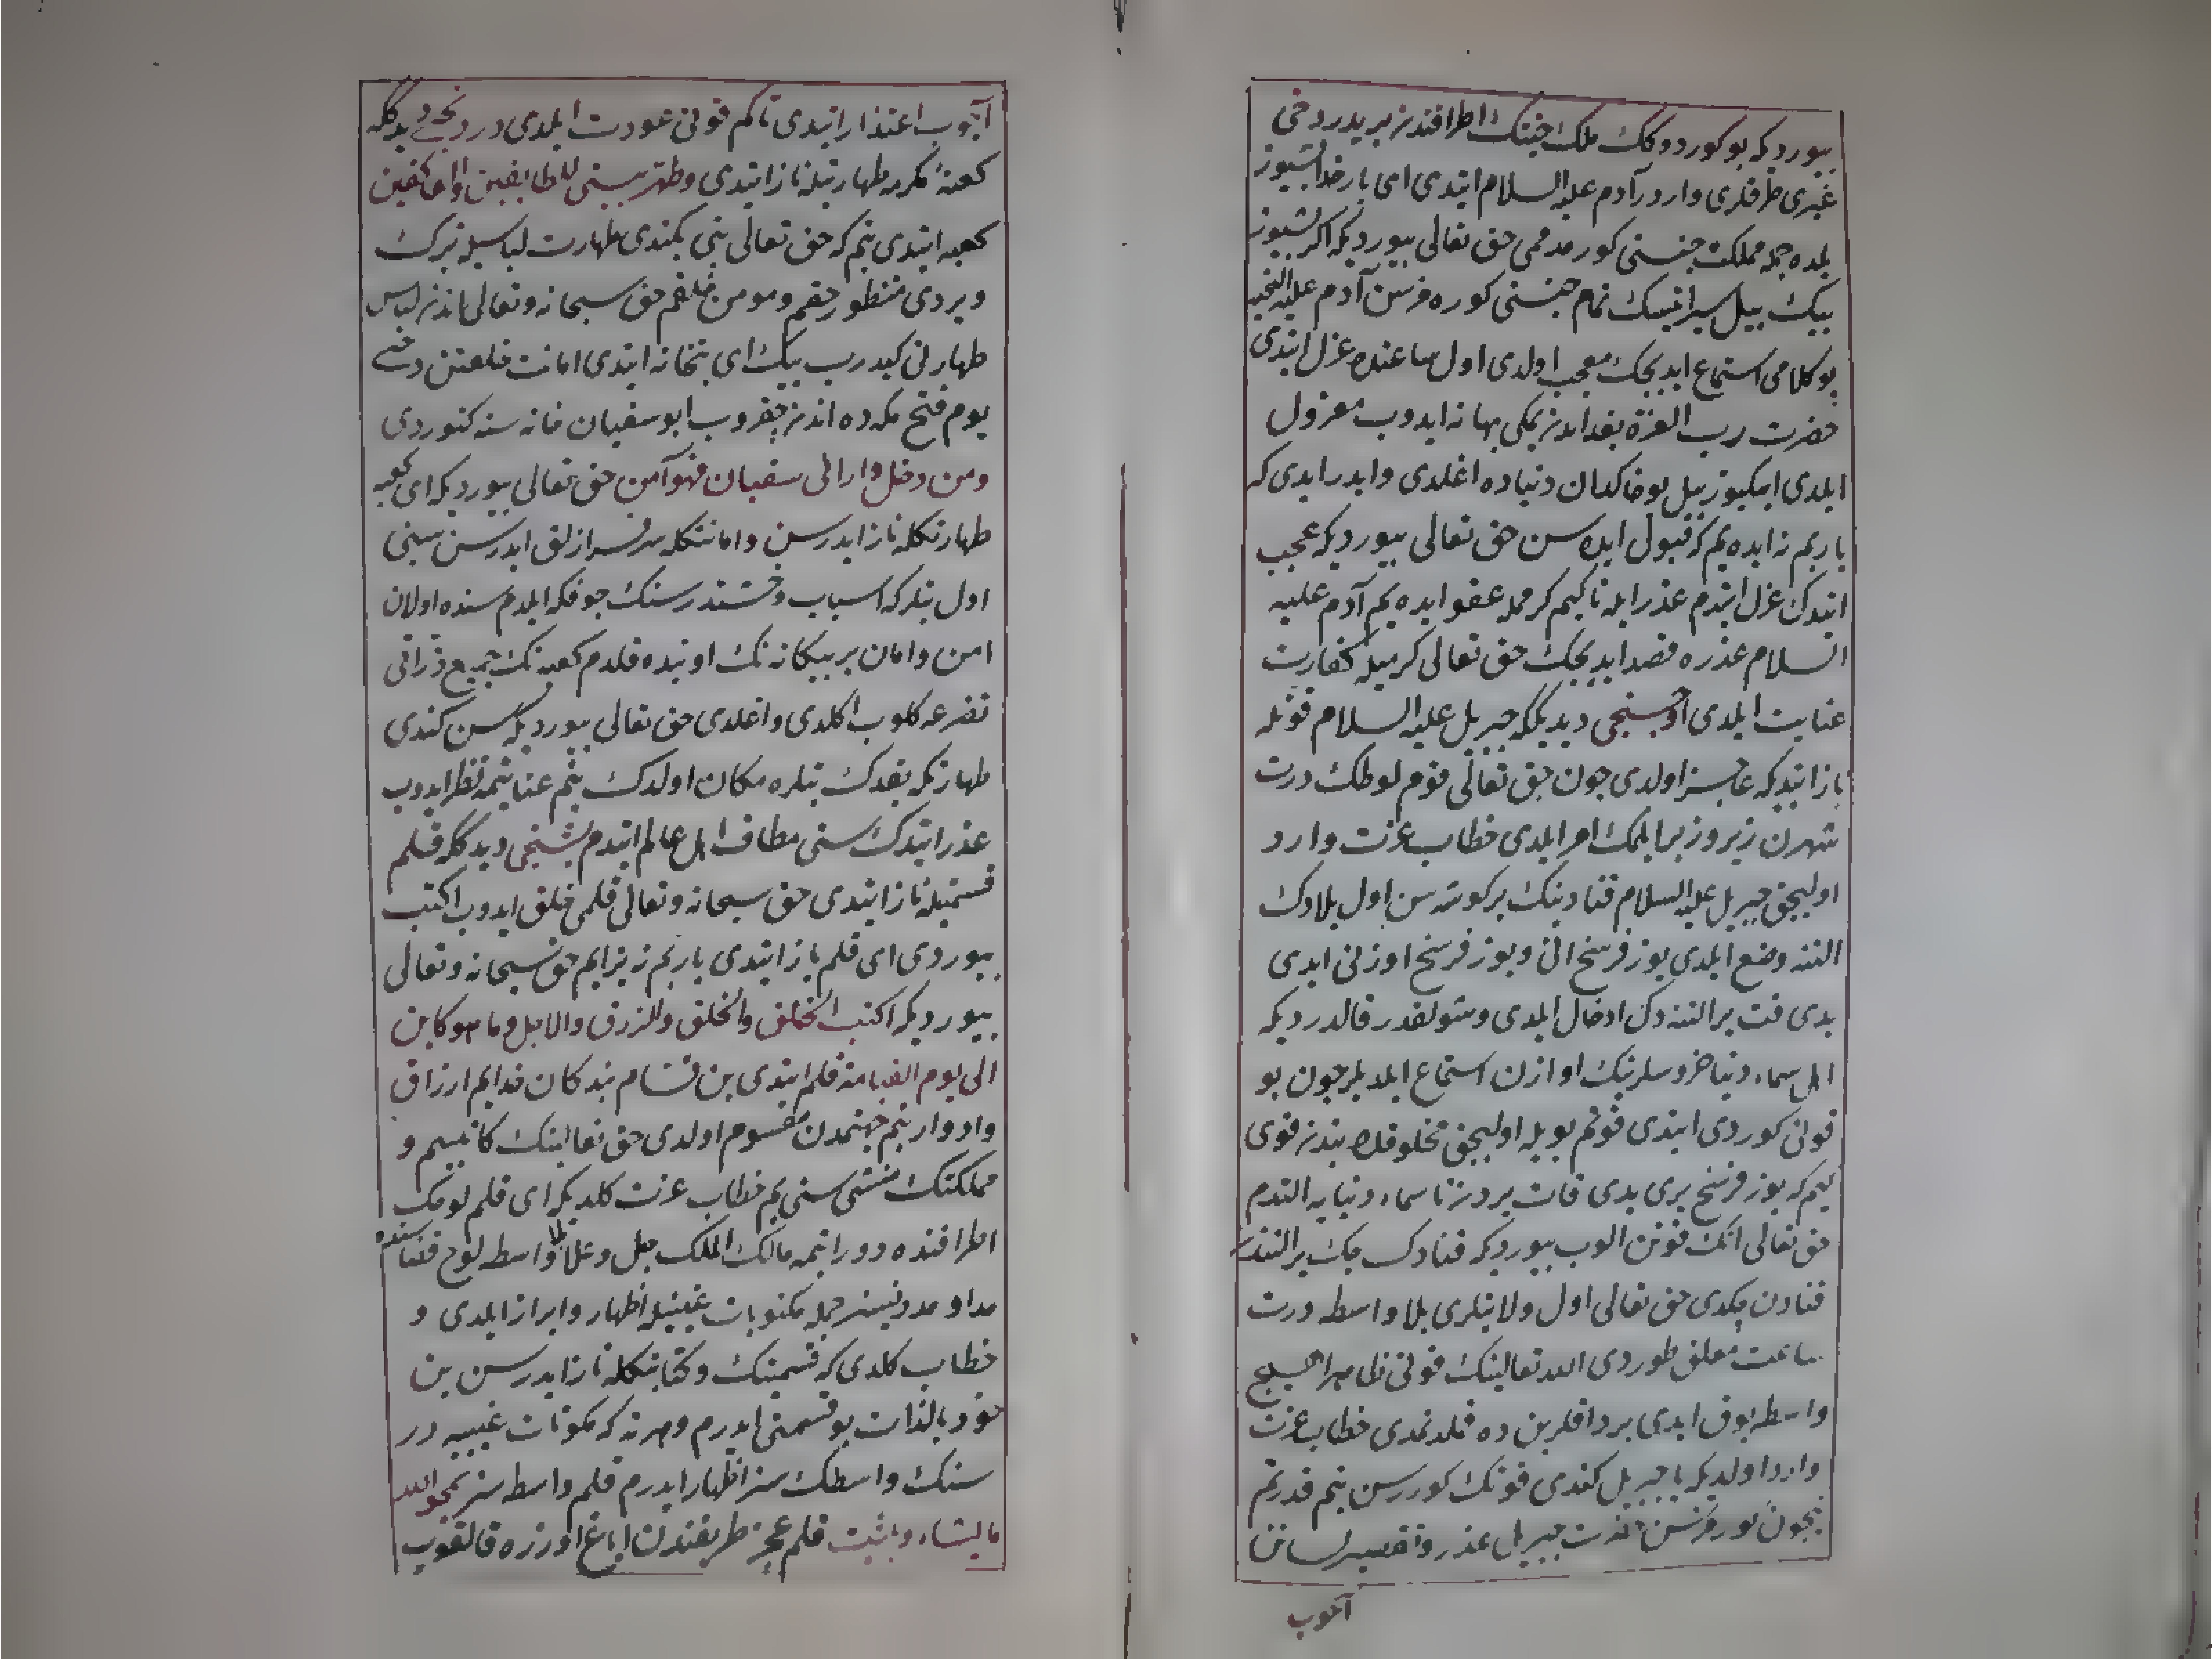 بيوردیکه بو کوردوکك ملك جنتك اطرافندن بریدر دخی
غیری طرفلری واردر آدم علیه السلام ایتدی ای بار خدا بشیوز
یلده جمله مملکت جنتی کورمدممی حق تعالی بیوردیکه اکر بشیوز
بیك ییل سیر ایتسك تمام جنتی کوره مزسن آدم علیه التحیه
بو کلامی استماع ایدیجك معجب اولدی اول ساعتده عزل ایتدی
حضرت رب العزة بغدایدن یمکی بهانه ایدوب معزول
ایلدی ایکیوز ییل بو خاکدان دنیاده اغلدی و ایدر ایدی که
یا ربم نه ایده یم که قبول ایده سن حق تعالی بیوردیکه عجب
ایتدکن عزل ایتدم عذر ایله تا کیم کرممله عفو ایده یم آدم علیه
السلام عذره قصد ایدیجك حق تعالی کرمیله کفارت
عنایت ایلدی اوچنجی دیدیککه جبریل علیه السلام قوتله
ناز ایتدیکه عاجز اولدی چون حق تعالی قوم لوطك درت
شهرن زیر و زبر ایلمك امر ایلدی خطاب عزت وارد
اولیجق جبریل علیه السلام قنادینك بر کوشه سن اول بلادك
التنه وضع ایلدی یوز فرسخ انی و یوز فرسخ اوزنی ایدی
یدی قت یر التنه دك ادخال ایلدی و شولقدر قالدردیکه
اهل سماء دنیا خروسلرینك اوازن استماع ایلدیلر چون بو
قوتی کوردی ایتدی قوتم بویله اولیجق مخلوقده بندن قوی
کیم که یوز فرسخ یری یدی قات یردن تا سماء دنیایه التدم
حق تعالی انك قوتن الوب بیوردیکه قنادك چك یر التندن
قنادن چکدی حق تعالی اول ولایتلری بلا واسطه درت
ساعت معلق طوردی الله تعالینك قوتی ظاهرا هیچ
واسطه یوق ایدی پردافلرین ده قلدنمدی خطاب عزت
وارد اولدیکه یا جبریل کندی قوتك کوررسن بنم قدرتم
نیچون کورمزسن حضرت جبریل عذر و تقصیر لسانن
آچوب
آچوب اعتذار ایتدی تا کم قوتی عودت ایلدی دردنجی دیدکله
کعبهٔ مکرمه طهارتیله ناز ایتدی وطهر بیتی للطایفین والعاکفین
کعبه ایتدی بنم که حق تعالی بنی بکندی طهارت لباسیله تبرك
ویردی منظور حقم و مومن خلقم حق سبحانه و تعالی اندن لباس
طهارتی کیدرب بیك ای بتخانه ایتدی امانت خلعتن دخی
یوم فتح مکه ده اندن چقروب ابو سفیان خانه سنه کتوردی
ومن دخل دار ابی سفیان فهو آمن حق تعالی بیوردیکه ای کعبه
طهارتکله ناز ایدرسن و امانتکله سرفرازلق ایدرسن سنی
اول بتلر که اسباب وحشتدر سنك جوفکه ایلدم سنده اولان
امن و امان بر بیکانه نك اوینده قلدم کعبه نك جمیع ذراتی
تضرعه کلوب اکلدی و اغلدی حق تعالی بیوردیکه سن کندی
طهارتکه بقدك بتلره مکان اولدك بنم عنایتمه نظر ایدوب
عذر ایتدك سنی مطاف اهل عالم ایتدم بشنجی دیدکله قلم
قسمتیله ناز ایتدی حق سبحانه و تعالی قلمی خلق ایدوب اکتب
بیوردی ای قلم یاز ایتدی یا ربم نه یزایم حق سبحانه و تعالی
بیوردیکه اکتب الخالق والخلق والرزق والاجل وما هو کاین
الی یوم القیامة قلم ایتدی بن قسام بندکان خدایم ارزاق
و ادوار بنم جهتمدن مقسوم اولدی حق تعالینك کاتبیم و
مملکتك منشیسی یم خطاب عزت کلدیکه ای قلم لوحك
اطرافنده دور ایتمه مالك الملك جل و علا بلا واسطه لوح قضا سنده
مداد مددینسز جمله مکتوبات غیبیله اظهار و ابراز ایلدی و
خطاب کلدی که قسمتك و کتابتکله ناز ایدرسن بن
خود بالذات بو قسمتی ایدرم و هر نه که مکونات غیبیه در
سنك واسطك سز اظهار ایدرم قلم واسطه سز یمحو الله
ما یشاء ویثبت قلم عجز طریقندن ایاغ اوزره قالقوب